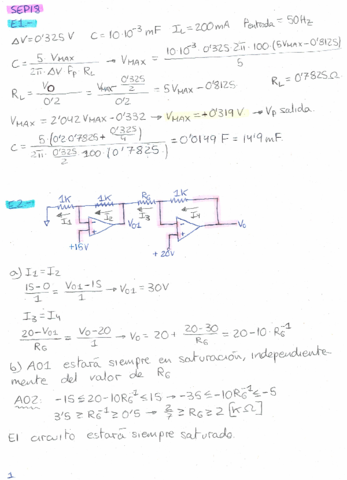 SEP18
E1-
ΔV=0'325V C=10·10⁻³mF I_L=200mA P_entrada=50Hz
C= 5 V_MAX / 2π·ΔV F_p R_L → V_MAX = 10·10⁻³·0'325 2π·100·(5V_MAX-0'8125) / 5
R_L = V_O / 0'2 = V_MAX - 0'325/2 / 0'2 = 5V_MAX-0'8125 R_L=0'7825Ω
V_MAX=2'042 V_MAX-0'332 → V_MAX=+0'319V → V_p salida.
C= 5·(0'2·0'7825+0'325/4) / 2π·0'325/2·100·(0'7825) =0'0149F=14'9mF.
E2-
1K 1K R_G 1K
I_1 I_2 V_01 I_3 I_4 V_0
+15V +20V
a) I_1=I_2
15-0 / 1 = V_01-15 / 1 → V_01=30V
I_3=I_4
20-V_01 / R_G = V_0-20 / 1 → V_0=20+ 20-30 / R_G = 20-10·R_G⁻¹
b) AO1 estará siempre en saturación, independiente-
mente del valor de R_G
AO2: -15≤20-10R_G⁻¹≤15 → -35≤-10R_G⁻¹≤-5
3'5≥R_G⁻¹≥0'5 → 2/7≥R_G≥2 [KΩ]
El circuito estará siempre saturado.
1